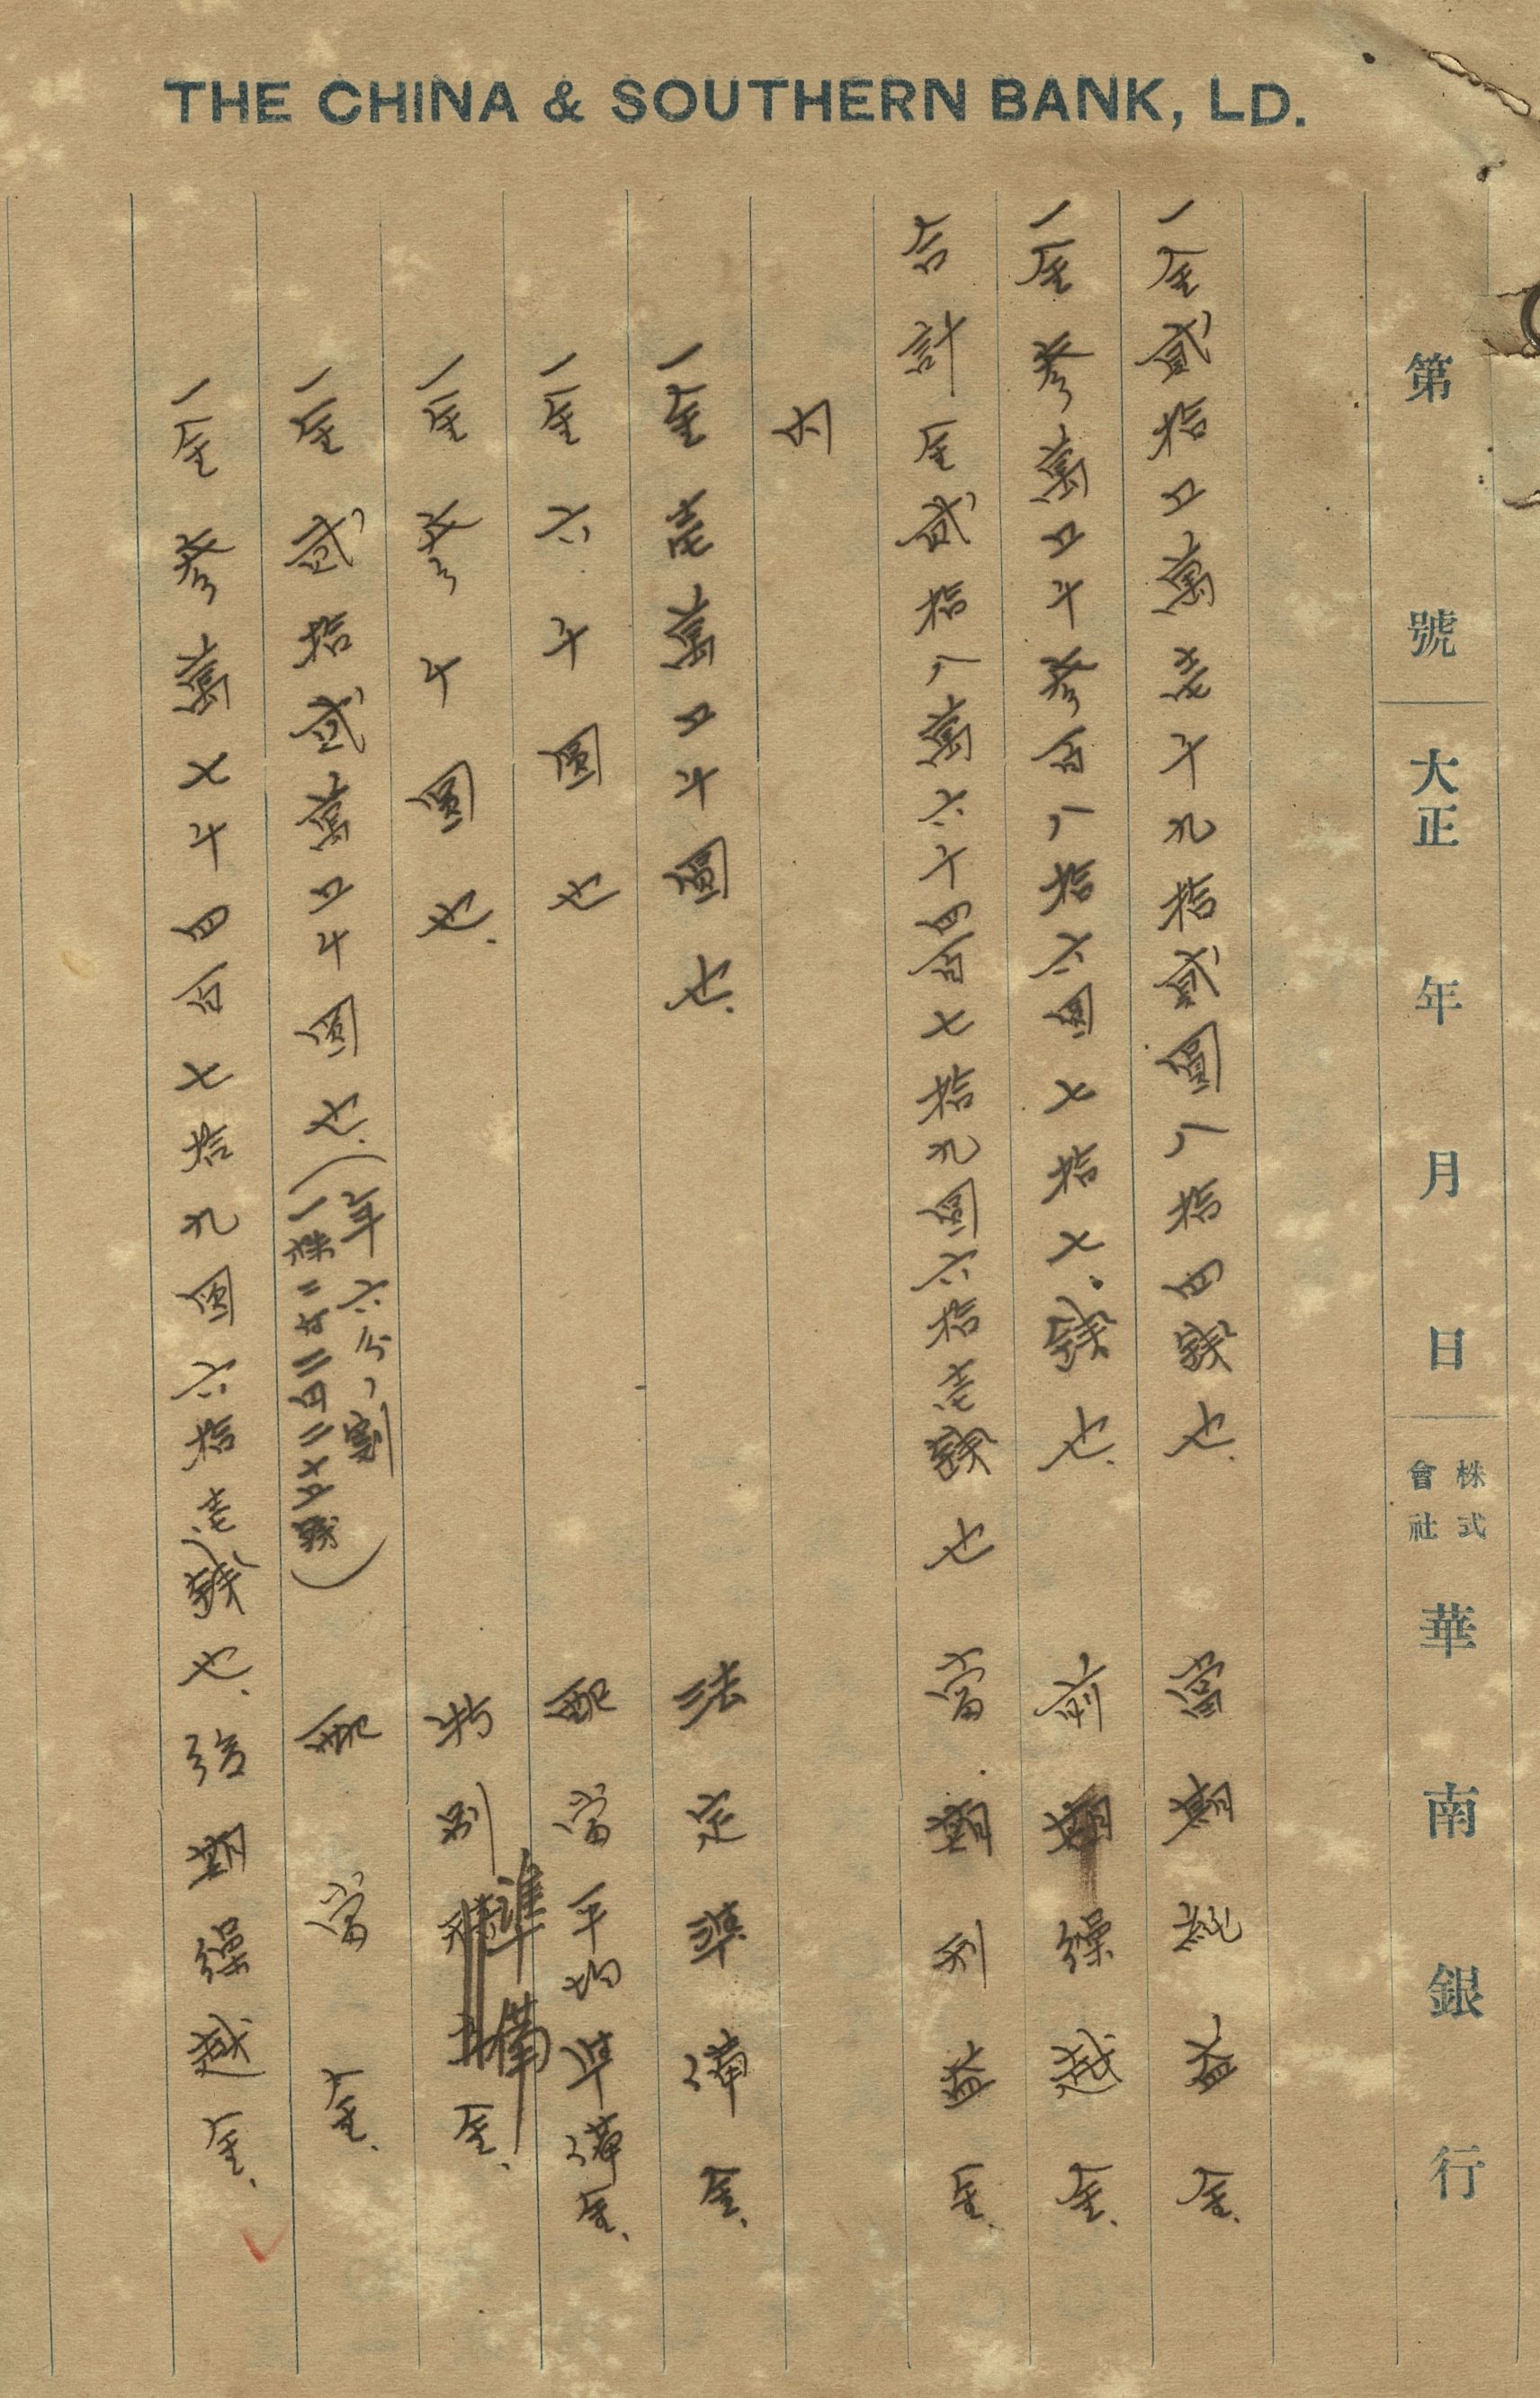 THE CHINA & SOUTHERN BANK, LD.
第 號 大正 年 月 日 株式會社 華南銀行
一金貳拾五萬壱千九拾貳圓八拾四銭也. 當期純益金.
一金參萬五千參百八拾六圓七拾七銭也. 前期繰越金.
合計金貳拾八萬六千四百七拾九圓六拾壱銭也 當期利益金.
内
一金壱萬五千圓也. 法定準備金.
一金六千圓也 配當平均準備金.
一金參千圓也. 特別準備金.
一金貳拾貳萬五千圓也.(年六分ノ割 一株ニ付 七五銭) 配當金.
一金參萬七千四百七拾九圓六拾壱銭也. 後期繰越金.